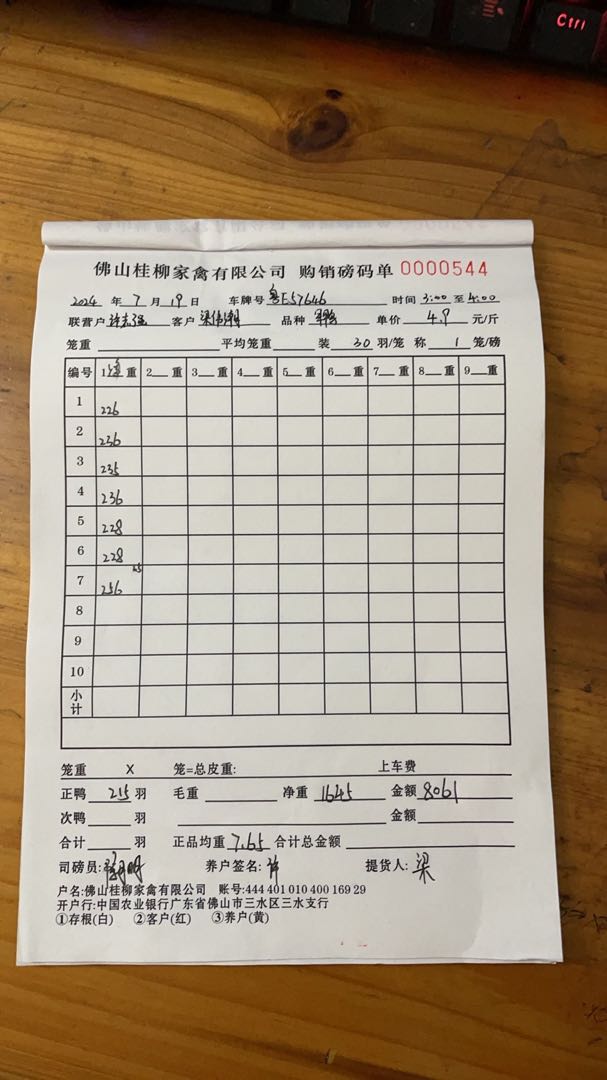 Ctrl
佛山桂柳家禽有限公司 购销磅码单 0000544
2024 年 7 月 19 日 车牌号 粤E57646 时间 3:00 至 4:00
联营户 客户 梁伟 品种 单价 4.9 元/斤
笼重 平均笼重 装 30 羽/笼 称 1 笼/磅
编号 1 重 2 重 3 重 4 重 5 重 6 重 7 重 8 重 9 重
1 226
2 236
3 235
4 236
5 228
6 228
7 256
8
9
10
小计
笼重 X 笼=总皮重: 上车费
正鸭 215 羽 毛重 净重 1645 金额 8061
次鸭 羽 金额
合计 羽 正品均重 7.65 合计总金额
司磅员: 养户签名: 许 提货人: 梁
户名:佛山桂柳家禽有限公司 账号:444 401 010 400 169 29
开户行:中国农业银行广东省佛山市三水区三水支行
①存根(白) ②客户(红) ③养户(黄)